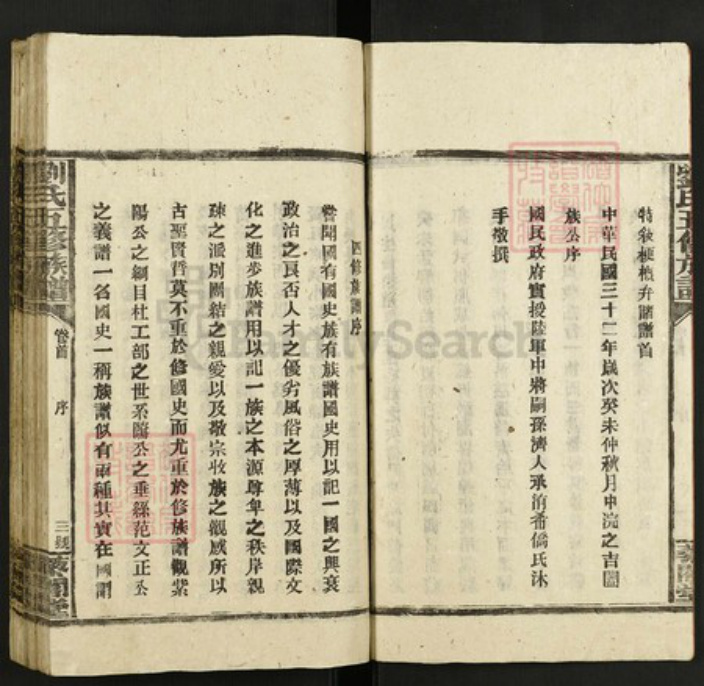 特敘梗概弁諸譜首
中華民國三十二年歲次癸未仲秋月中浣之吉闔
族公序
國民政府實授陸軍中將嗣孫濟人承濱喬氏沐
手敬撰
四修族譜序
嘗聞國有國史族有族譜國史用以記一國之興衰
政治之良否人才之優劣風俗之厚薄以及國際文
化之進步族譜用以記一族之本源尊卑之秩序親
疎之派別團結之親愛以及敬宗收族之觀感所以
古聖賢哲莫不重於修國史而尤重於修族譜觀紫
陽公之綱目杜工部之世系歐公之垂絲范文正公
之義譜一名國史一稱族譜似有兩種其實在國謂
劉氏五修族譜
卷首
序
三銳
劉氏五修族譜
FamilySearch